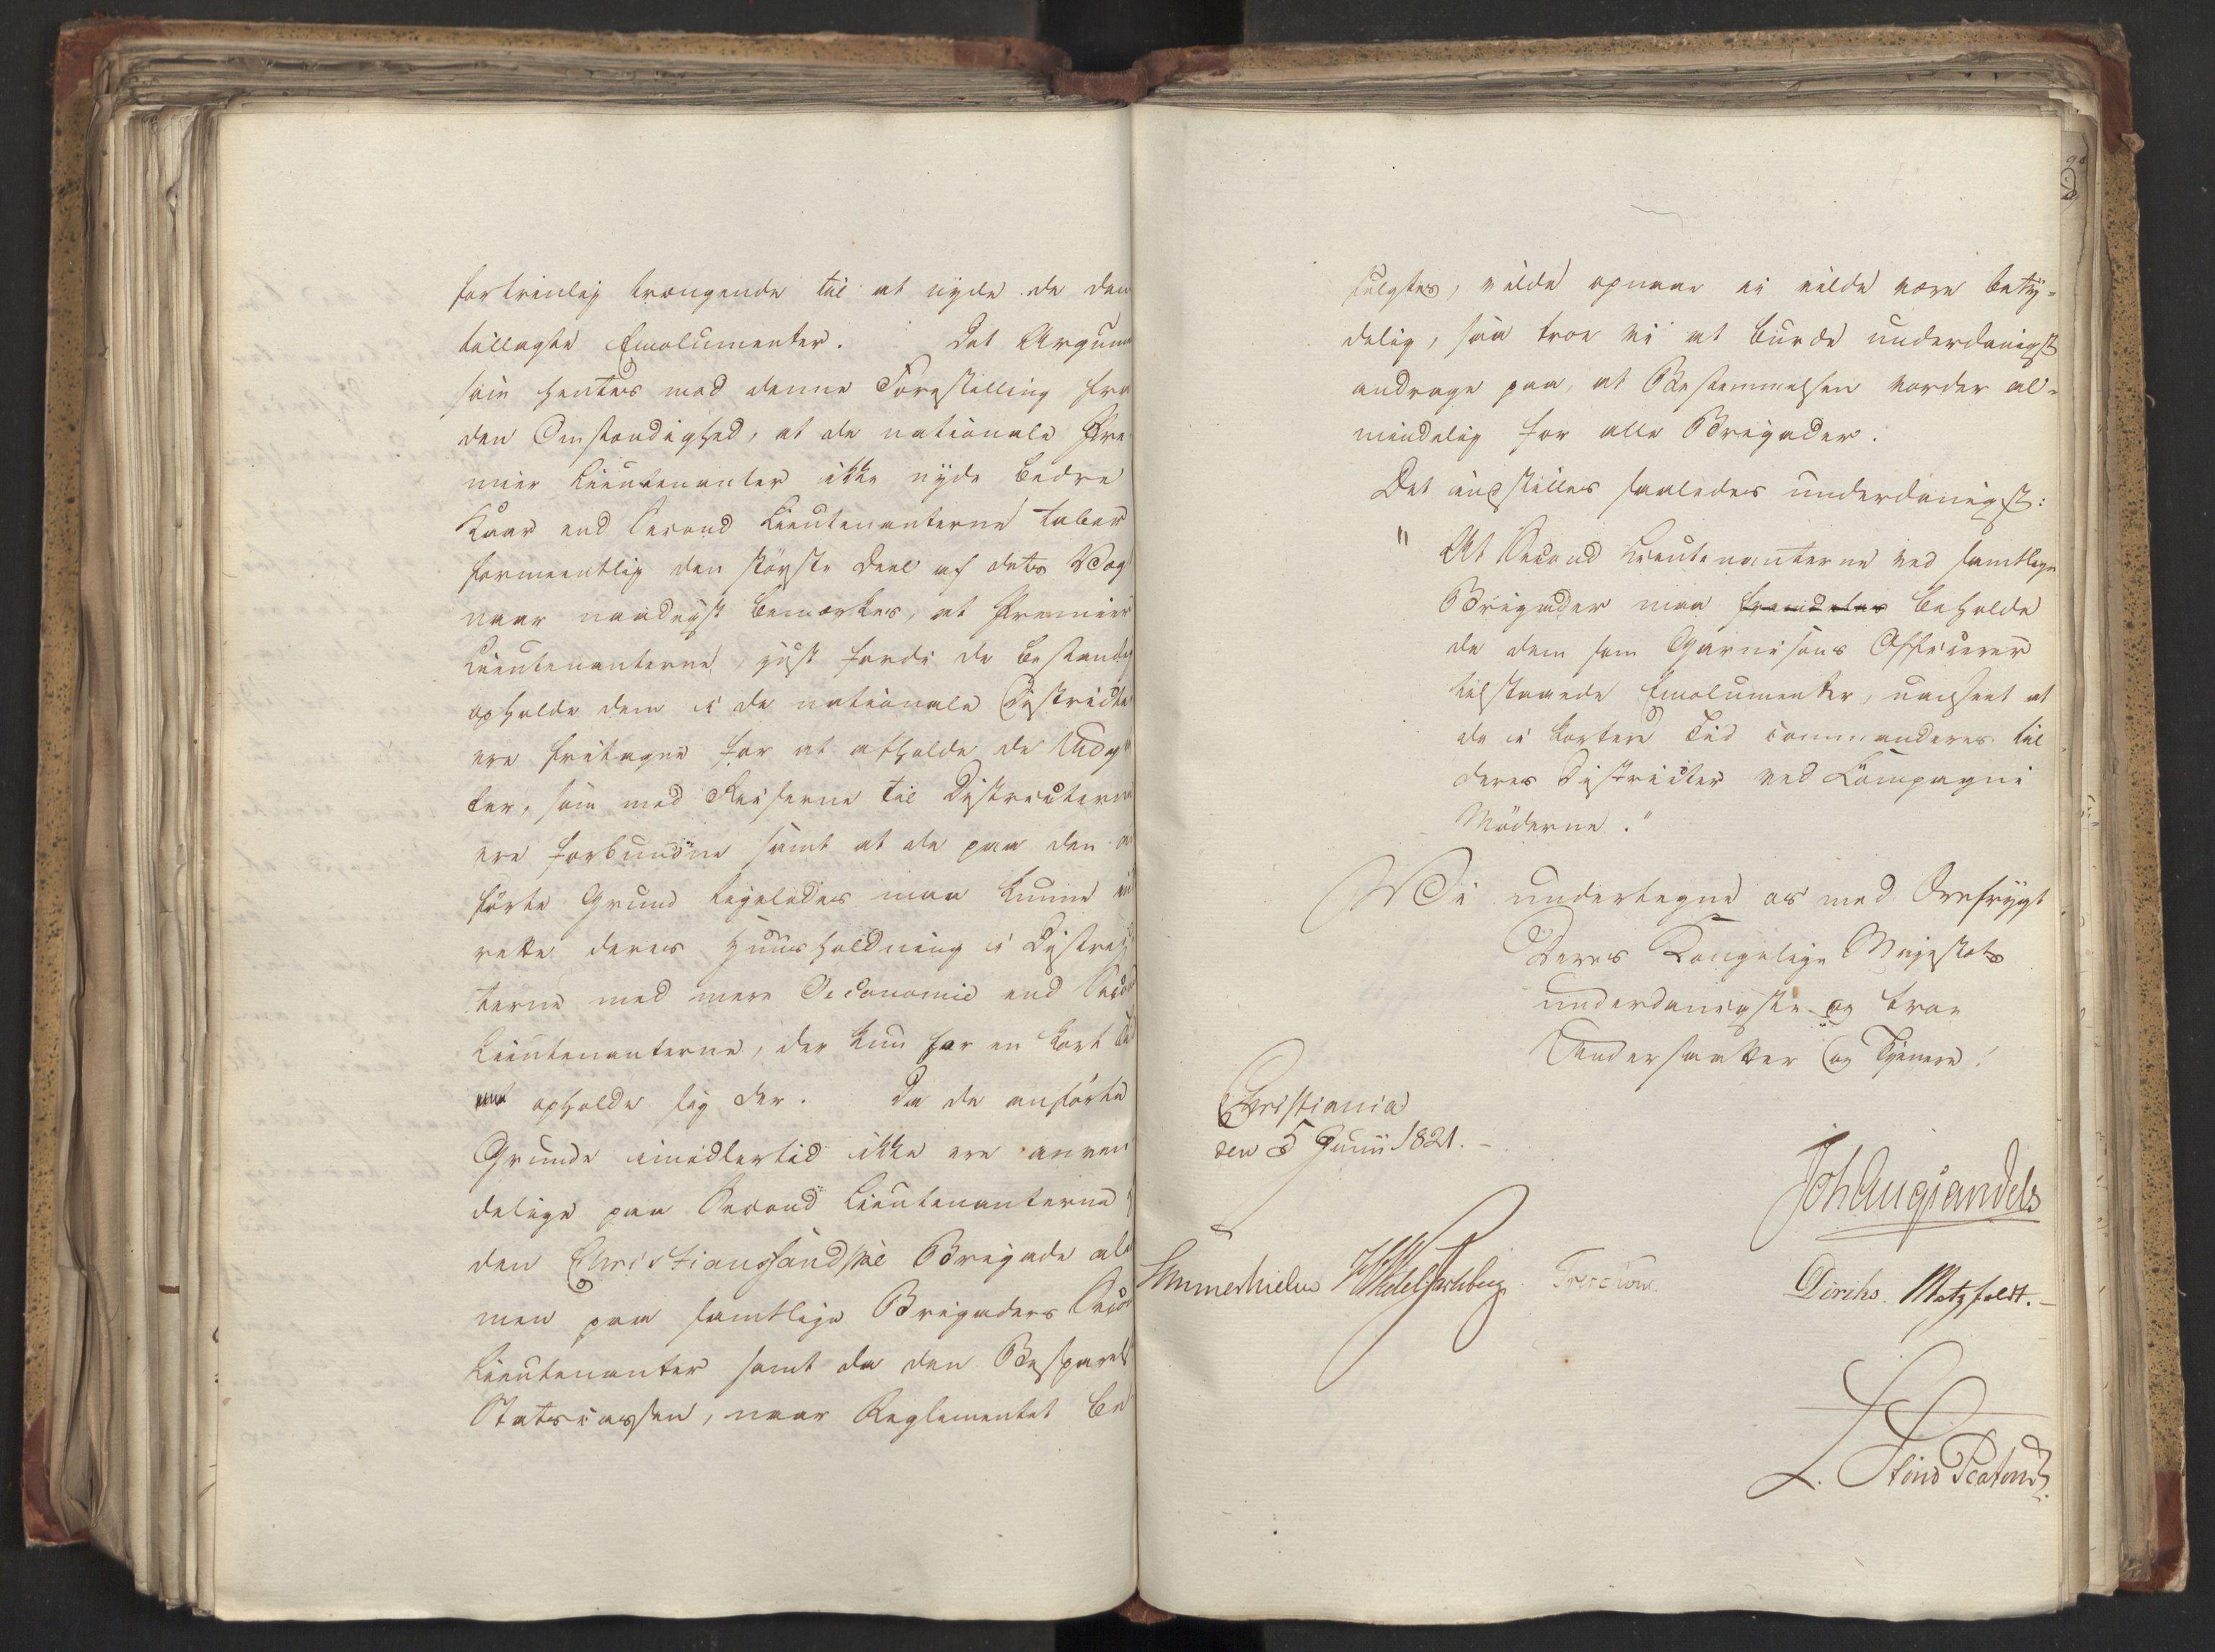 fortrinlig trængende til at nyde de dem
tillagte Emolumenter. Det Argum
som hentes mod denne Forestilling fra
den Omstændighed, at de nationale Pre
mier Lieutenanter ikke nyde bedre
Kaar end Second Lieutenanterne taber
formeentlig den störste Deel af dets Væg
naar naadigst bemærkes, at Premier
Lieutenanterne, just fordi de bestandig
opholde dem i de nationale Districte
ere fritagne for at afholde de Udg
ter, som med Reiserne til Districterne
ere forbundne samt at de paa den an
förte Grund ligeledes maa kunne ind
rette deres Huusholdning i Distric
terne med mere Oeconomie end Second
Lieutenanterne, der kun for en kort Tid
opholde sig der. Da de anförte
Grunde imidlertid ikke ere anven
delige paa Second Lieutenanterne i
den Christianssandske Brigade alene
men paa samtlige Brigaders Second
Lieutenanter samt da den Besparelse
Statscassen, naar Reglementet be
fulgtes, vilde opnaae ei vilde være bety-
delig, saa troe vi at burde underdanigst
andrage paa, at Bestemmelsen vorder al-
mindelig for alle Brigader.
Det indstilles saaledes underdanigst:
"At Second Lieutenanterne ved samtlige
Brigader maa fremdeles beholde
de dem som Garnisons Officierer
tilstaaede Emolumenter, uanseet at
de i kortere Tid commanderes til
deres Districter ved Compagnie
Möderne."
Vi undertegne os med Ærefrygt
Deres Kongelige Majestæts
underdanigste og troe
Undersaatter og Tjenere!
Christiania
den 5 Junii 1821.-
Joh Aug Sandels
Sommerhielm Treschow Diriks Motzfeldt.-
L. Stoud Platou